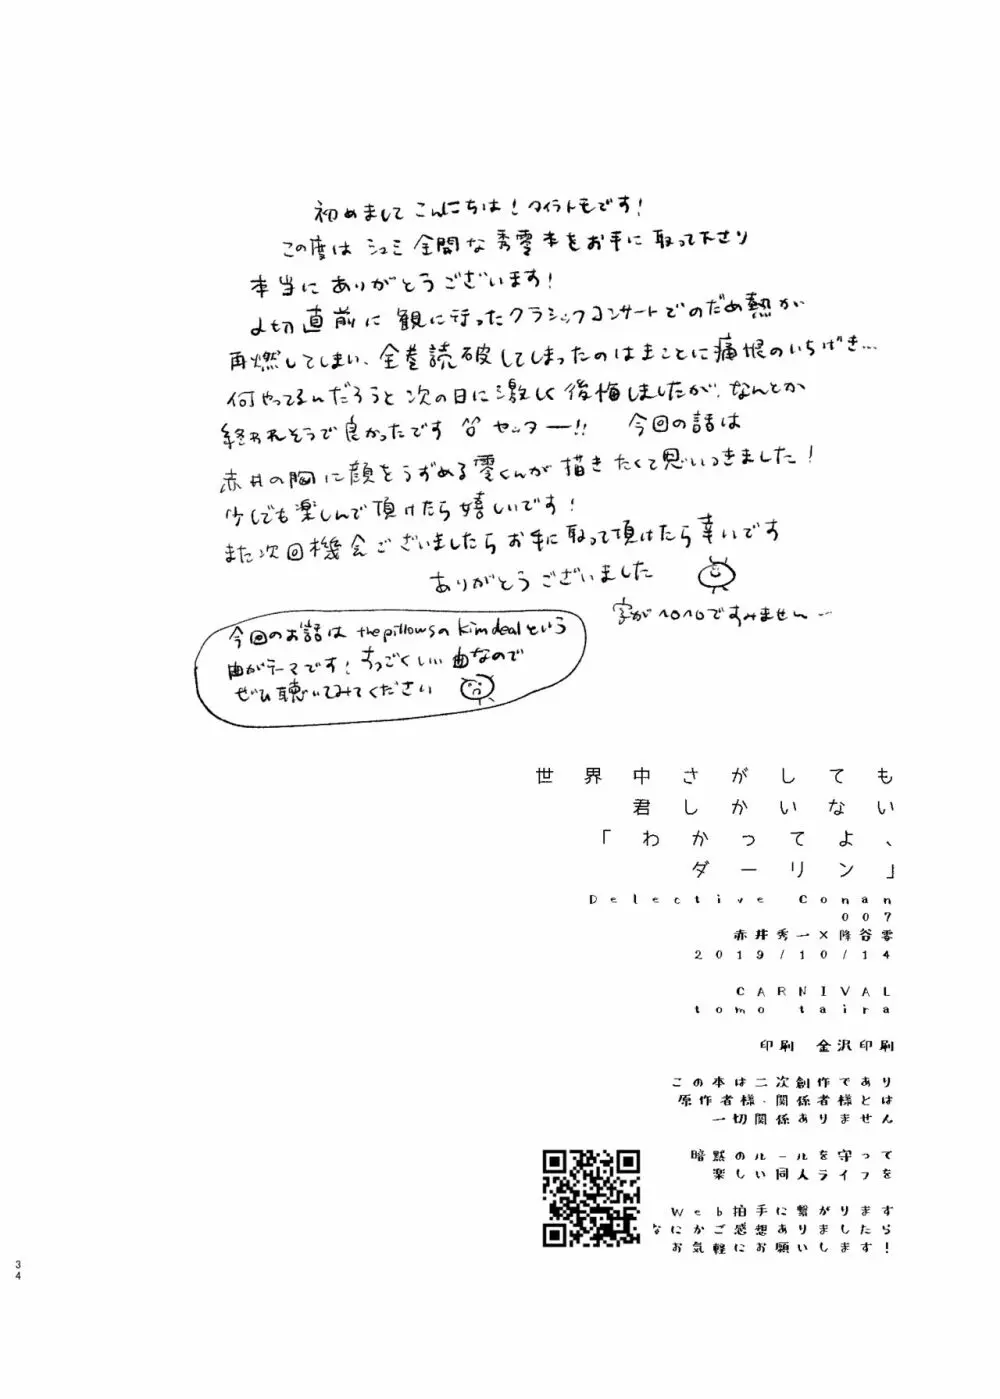 初めまして こんにちは！タイラトモです！
この度は シュミ 全開な 秀零本をお手に 取って下さり
本当に ありがとうございます！
〆切 直前に 観に行ったクラシックコンサートでのだめ熱が
再燃してしまい、全巻読破してしまったのはまことに痛恨のいちげき…
何やってるんだろうと 次の日に激しく 後悔しましたが、なんとか
終われそうで良かったです ヤッター!! 今回の話は
赤井の胸に顔をうずめる零くんが 描きたくて思いつきました！
少しでも楽しんで頂けたら嬉しいです！
また次回機会ございましたら お手に取って頂けたら幸いです
ありがとうございました
字がヘロヘロですみません…
今回のお話は the pillowsの Kim dealという
曲がテーマです！すっごくいい曲なので
ぜひ聴いてみてください
世界中さがしても
君しかいない
「わかってよ、
ダーリン」
Detective Conan
007
赤井秀一×降谷零
2019/10/14
CARNIVAL
tomo taira
印刷 金沢印刷
この本は二次創作であり
原作者様・関係者様とは
一切関係ありません
暗黙のルールを守って
楽しい同人ライフを
Web拍手に繋がります
なにかご感想ありましたら
お気軽にお願いします！
34